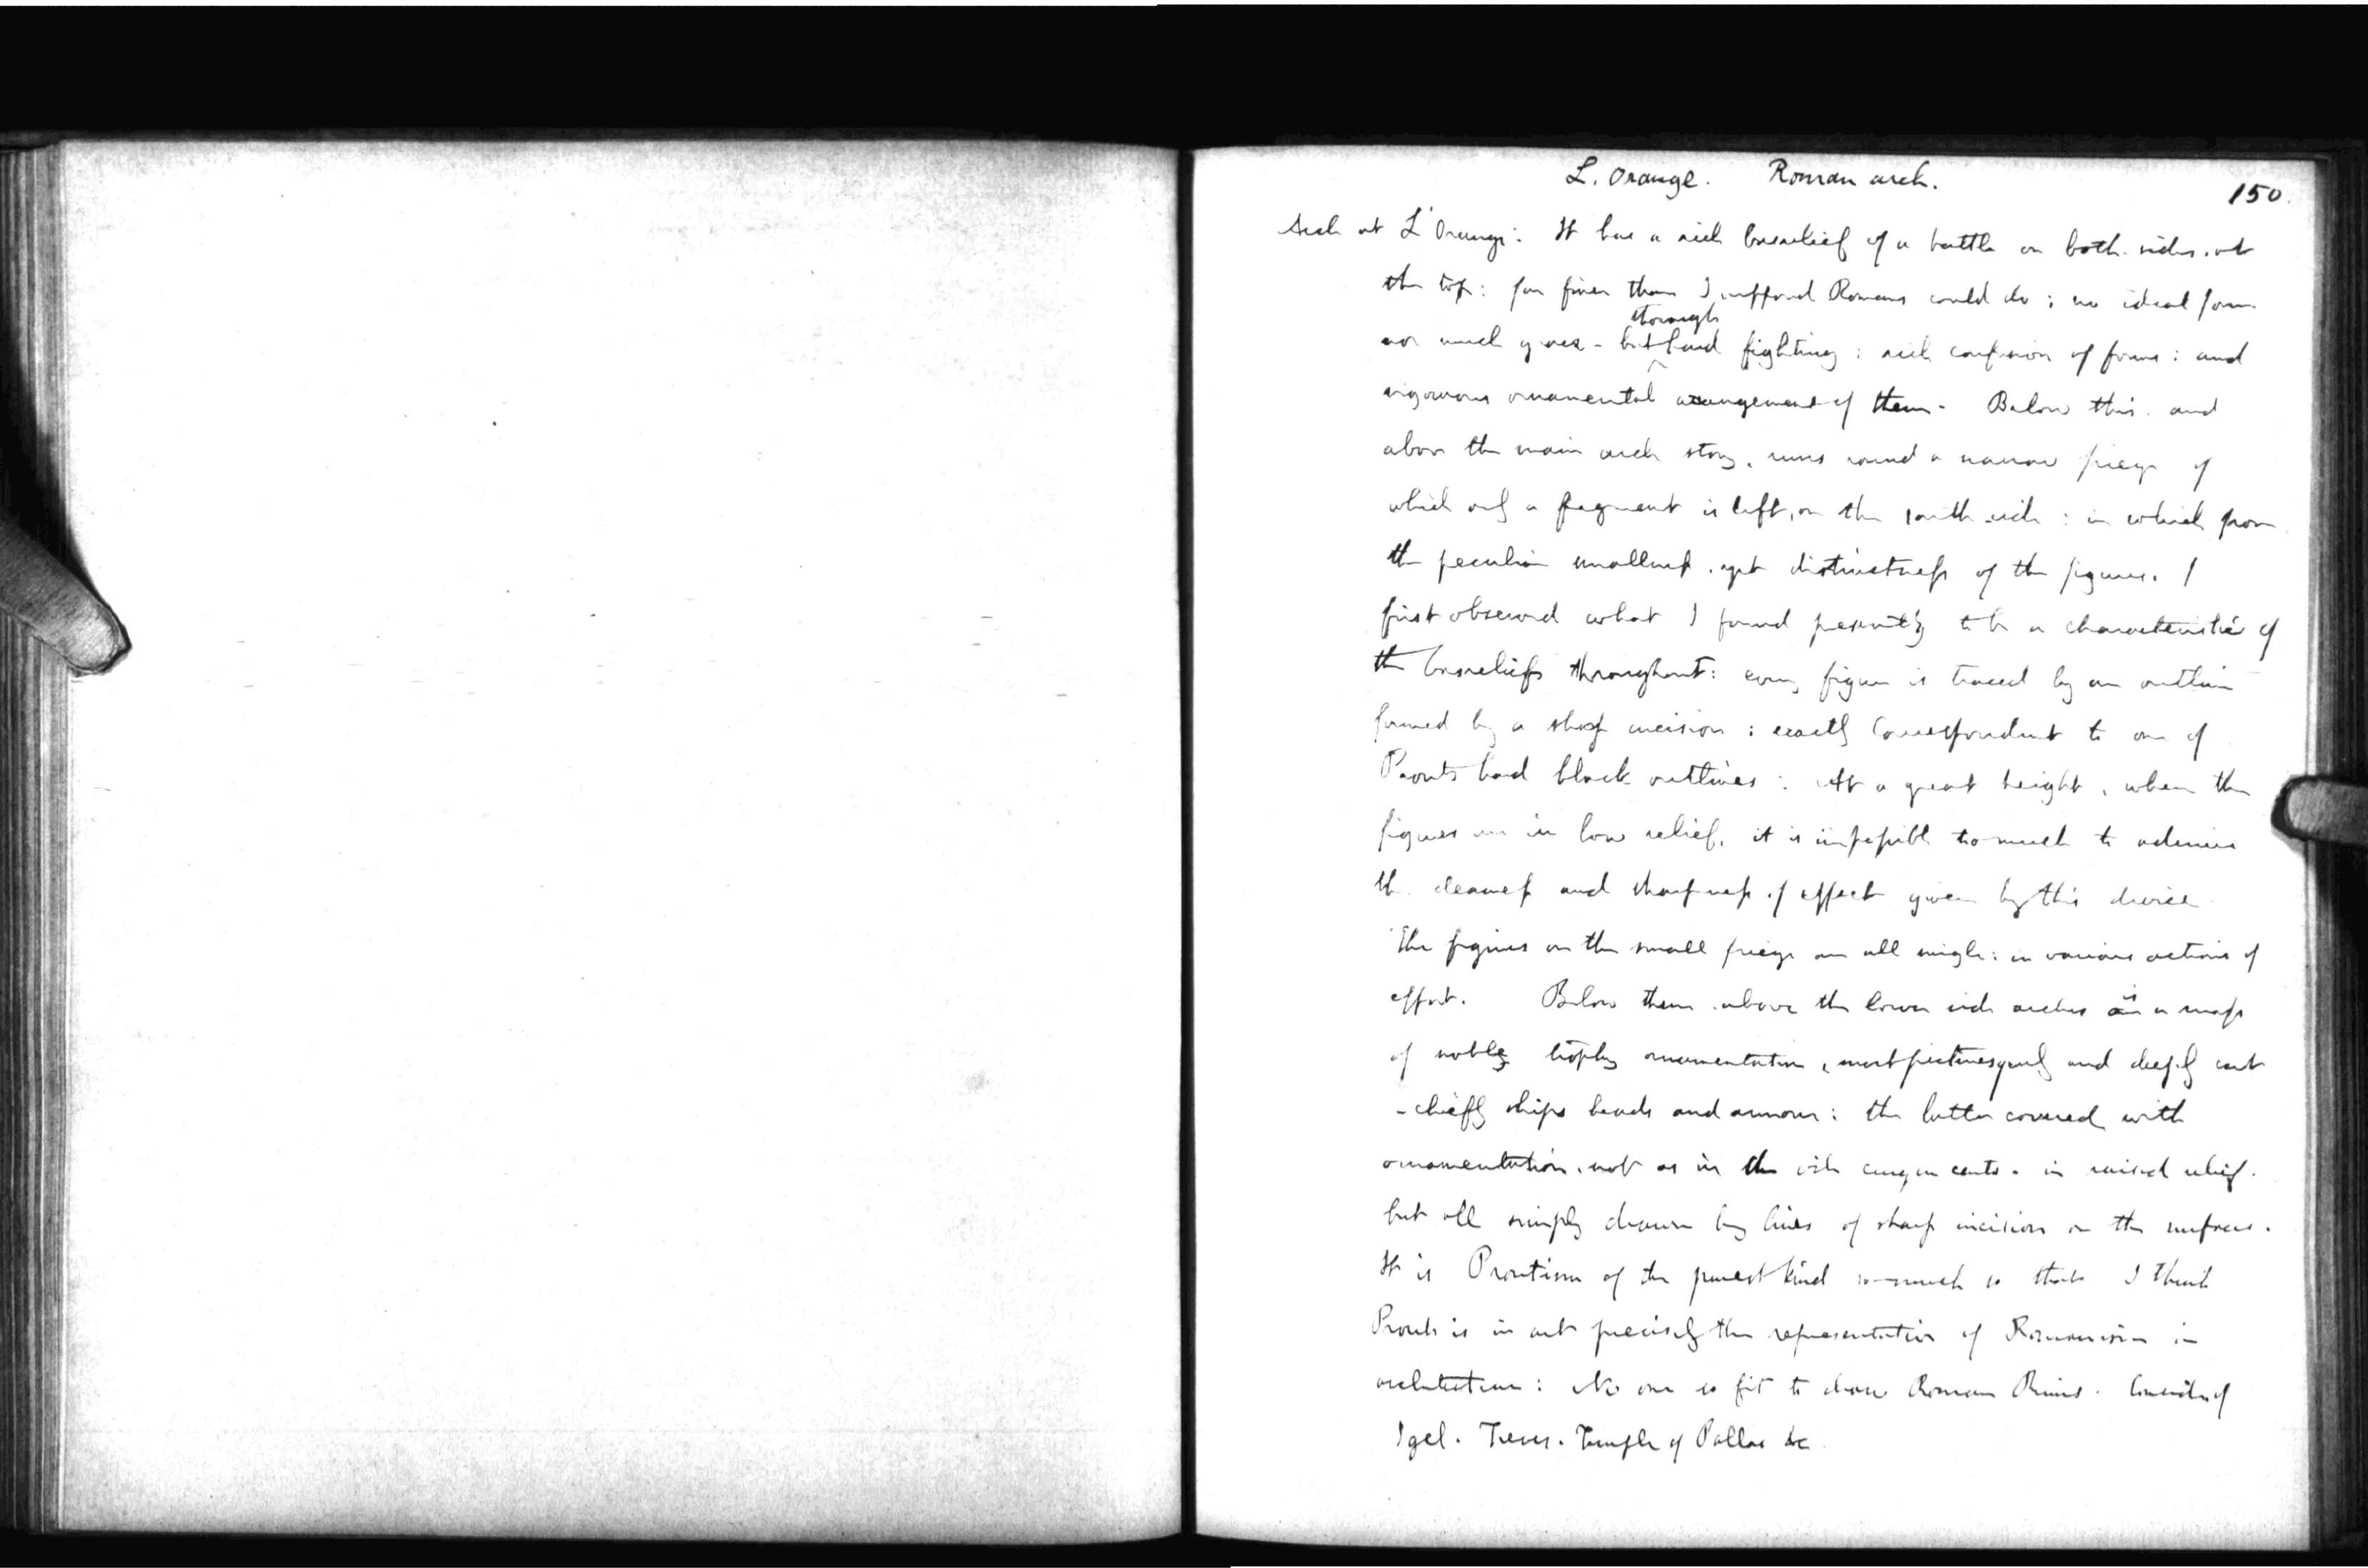 L. Orange. Roman arch.
150.
Arch at L'Orange: It has a rich basrelief of a battle on both sides, at
the top: far finer than I supposed Romans could do; no ideal form
nor much grace - but thorough hard fighting: rich confusion of forms: and
vigorous ornamental arrangement of them. Below this, and
above the main arch story, runs round a narrow frieze of
which only a fragment is left, on the south side: in which from
the peculiar smallness, yet distinctness of the figures, I
first observed what I found presently to be a characteristic of
the basreliefs throughout: every figure is traced by an outline
formed by a sharp incision: exactly correspondent to one of
Prouts hard black outlines: At a great height, when the
figures are in low relief, it is impossible too much to admire
the clearness and sharpness of effect given by this device
The figures on the small frieze are all single: in various actions of
effort. Below them, above the lower side arches is a mass
of noble trophy ornamentation, most picturesquely and deeply cut
- chiefly ships heads and armour: the latter covered with
ornamentation, not as in the vile cinque cento - in raised relief.
but all simply drawn by lines of sharp incision on the surface.
It is Proutism of the purest kind so much so that I think
Prout is in art precisely the representative of Romanism in
architecture: No one so fit to draw Roman Ruins. Consider if
Igel. Treves. Temple of Pallas &c